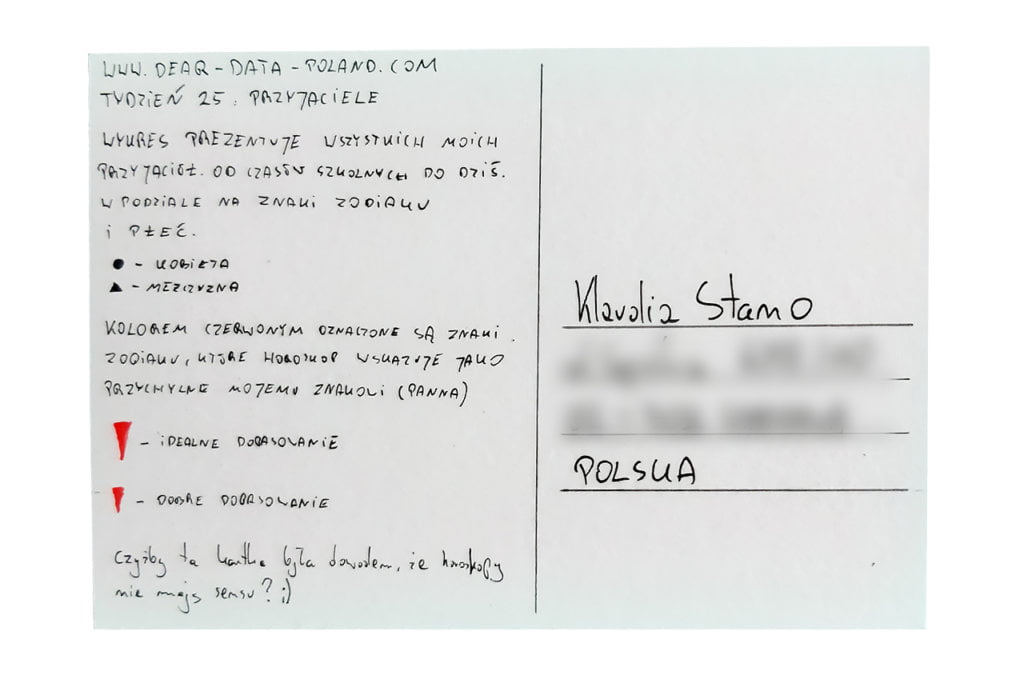 WWW.DEAR-DATA-POLAND.COM
TYDZIEŃ 25: PRZYJACIELE
WYKRES PREZENTUJE WSZYSTKICH MOICH
PRZYJACIÓŁ. OD CZASÓW SZKOLNYCH DO DZIŚ.
W PODZIALE NA ZNAKI ZODIAKU
I PŁEĆ.
● - KOBIETA
▲ - MEZCZYZNA
KOLOREM CZERWONYM OZNACZONE SĄ ZNAKI
ZODIAKU, KTÓRE HOROSKOP WSKAZUJE JAKO
PRZYCHYLNE MOJEMU ZNAKOWI (PANNA)
- IDEALNE DOPASOWANIE
- DOBRE DOPASOWANIE
Czyżby ta kartka była dowodem, że horoskopy
nie mają sensu? ;)
Klaudia Stano
POLSKA